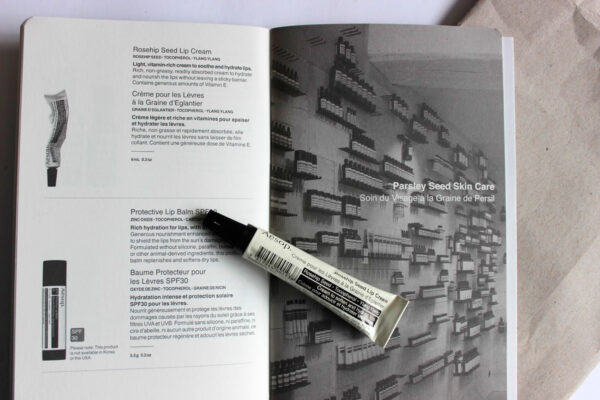 Rosehip Seed Lip Cream
ROSEHIP SEED • TOCOPHEROL • YLANG YLANG
Light, vitamin-rich cream to soothe and hydrate lips.
Rich, non-greasy, readily absorbed cream to hydrate
and nourish the lips without leaving a sticky barrier.
Contains generous amounts of Vitamin E.
Crème pour les Lèvres
à la Graine d'Eglantier
GRAINE D'EGLANTIER • TOCOPHEROL • YLANG YLANG
Crème légère et riche en vitamines pour apaiser
et hydrater les lèvres.
Riche, non grasse et rapidement absorbée, elle
hydrate et nourrit les lèvres sans laisser de film
collant. Contient une généreuse dose de Vitamine E.
Protective Lip Balm
ZINC OXIDE • TOCOPHEROL
Rich hydration for lips, with
Generous nourishment
to shield the lips from the sun's
Formulated without silicone,
or other animal-derived ingredients, this
balm replenishes and softens dry lips.
Baume Protecteur pour
les Lèvres SPF30
OXYDE DE ZINC • TOCOPHEROL • GRAINE DE RICIN
Hydratation intense et protection solaire
SPF30 pour les lèvres.
Nourrit généreusement et protège les lèvres des
dommages causés par les rayons du soleil grâce à ses
filtres UVA et UVB. Formulé sans silicone, ni paraffine, ni
cire d'abeille, ni aucun autre produit d'origine animale, ce
baume protecteur régénère et adoucit les lèvres sèches.
Aesop
SPF
30
Please note: This product
is not available in Korea
or the USA.
Parsley Seed Skin Care
Soin du Visage à la Graine de Persil
Aesop
Rosehip Seed Lip Cream
Crème pour les Lèvres à la Graine d'Eglantier